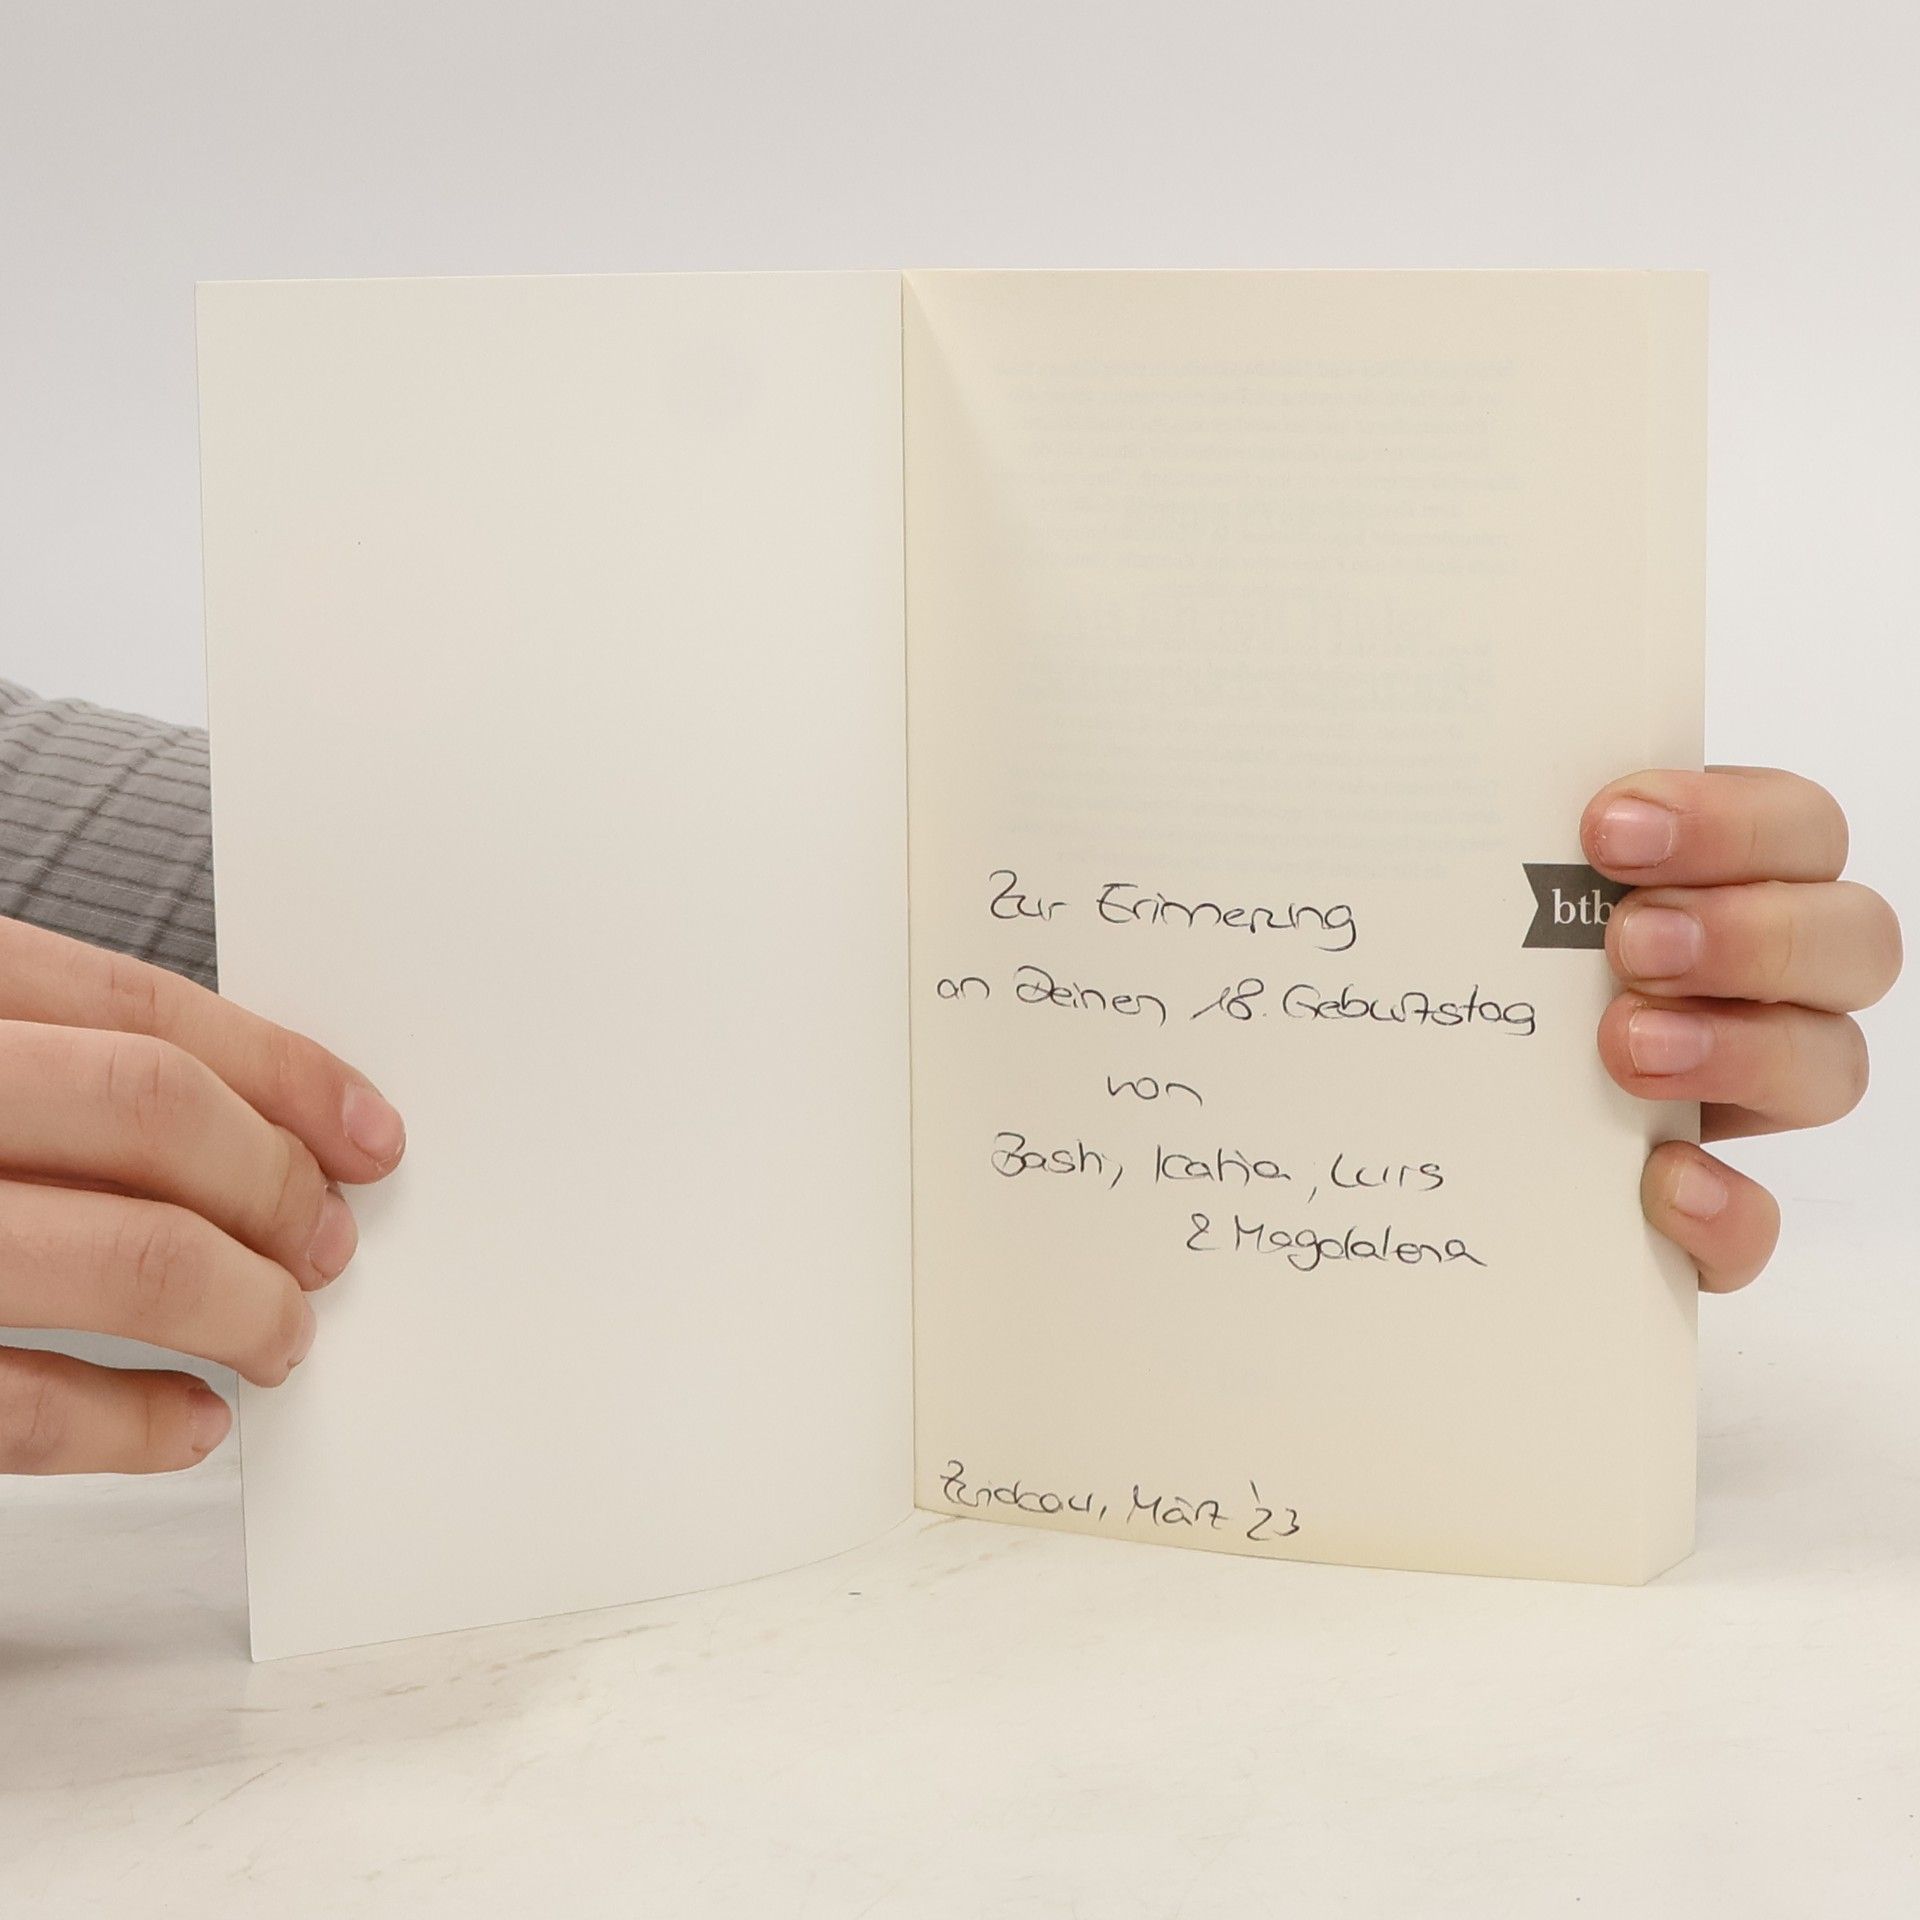 btb
Zur Erinnerung
an Deinen 18. Geburtstag
von
Bash, Katja, Luis
& Magdalena
Zwickau, März '23